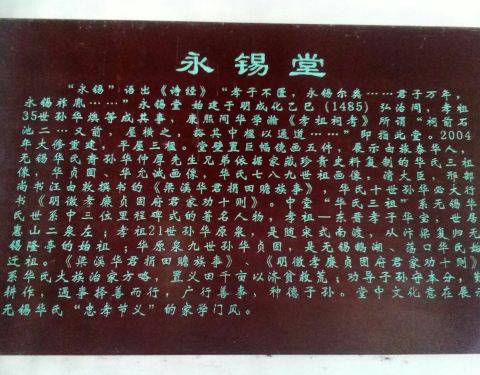 永锡堂
“永锡”语出《诗经》“孝子不匮,永锡尔类……君子万年,
永锡祚胤……”永锡堂 始建于明成化乙巳(1485)弘治间,孝祖
35世孙华燧等成其事,康熙间华学瀚《孝祖祠考》所谓“祠前石
池二……又前,屋横之,豁其中楹以通道……”即指此堂。2004
年大修重建,平屋三楹。堂壁置巨幅镜画五件,展示由旅泰华人,
无锡华氏裔孙华仲厚先生兄弟依据家藏珍贵史料复制的华氏三祖
像,华贞固、华允诚画像,华氏七八九世祖画像,清大臣,邢部
尚书汪由敦撰书的《梁溪华君捐田赡族事》 华氏十世孙华必大行
书《明徵孝廉贞固府君家功十则》。中堂“华氏三祖”系无锡华
氏世系中三位里程碑式的著名人物,孝祖—东晋孝子华宝;世居
惠山二泉左;孝祖21世孙华原泉,是随宋式南渡,从汴梁复归无
锡隆亭的始祖;华原泉九世孙华贞固,是无锡鹅湖、荡口华氏始
迁祖。《梁溪华君捐田赡族事》、《明徵孝廉贞固府君家功十则》
系华氏大族治家方略,置义田千亩以济贫救荒;劝导子孙守本分,勤
耕作,遇事择善而行,广行善事,种德子孙。堂中文化意在展示
无锡华氏“忠孝节义”的家学门风。